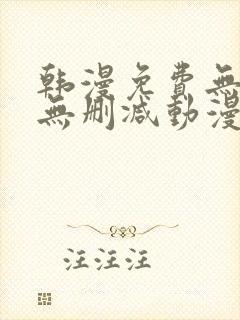 韩漫免費無
無删减動漫
汪汪汪